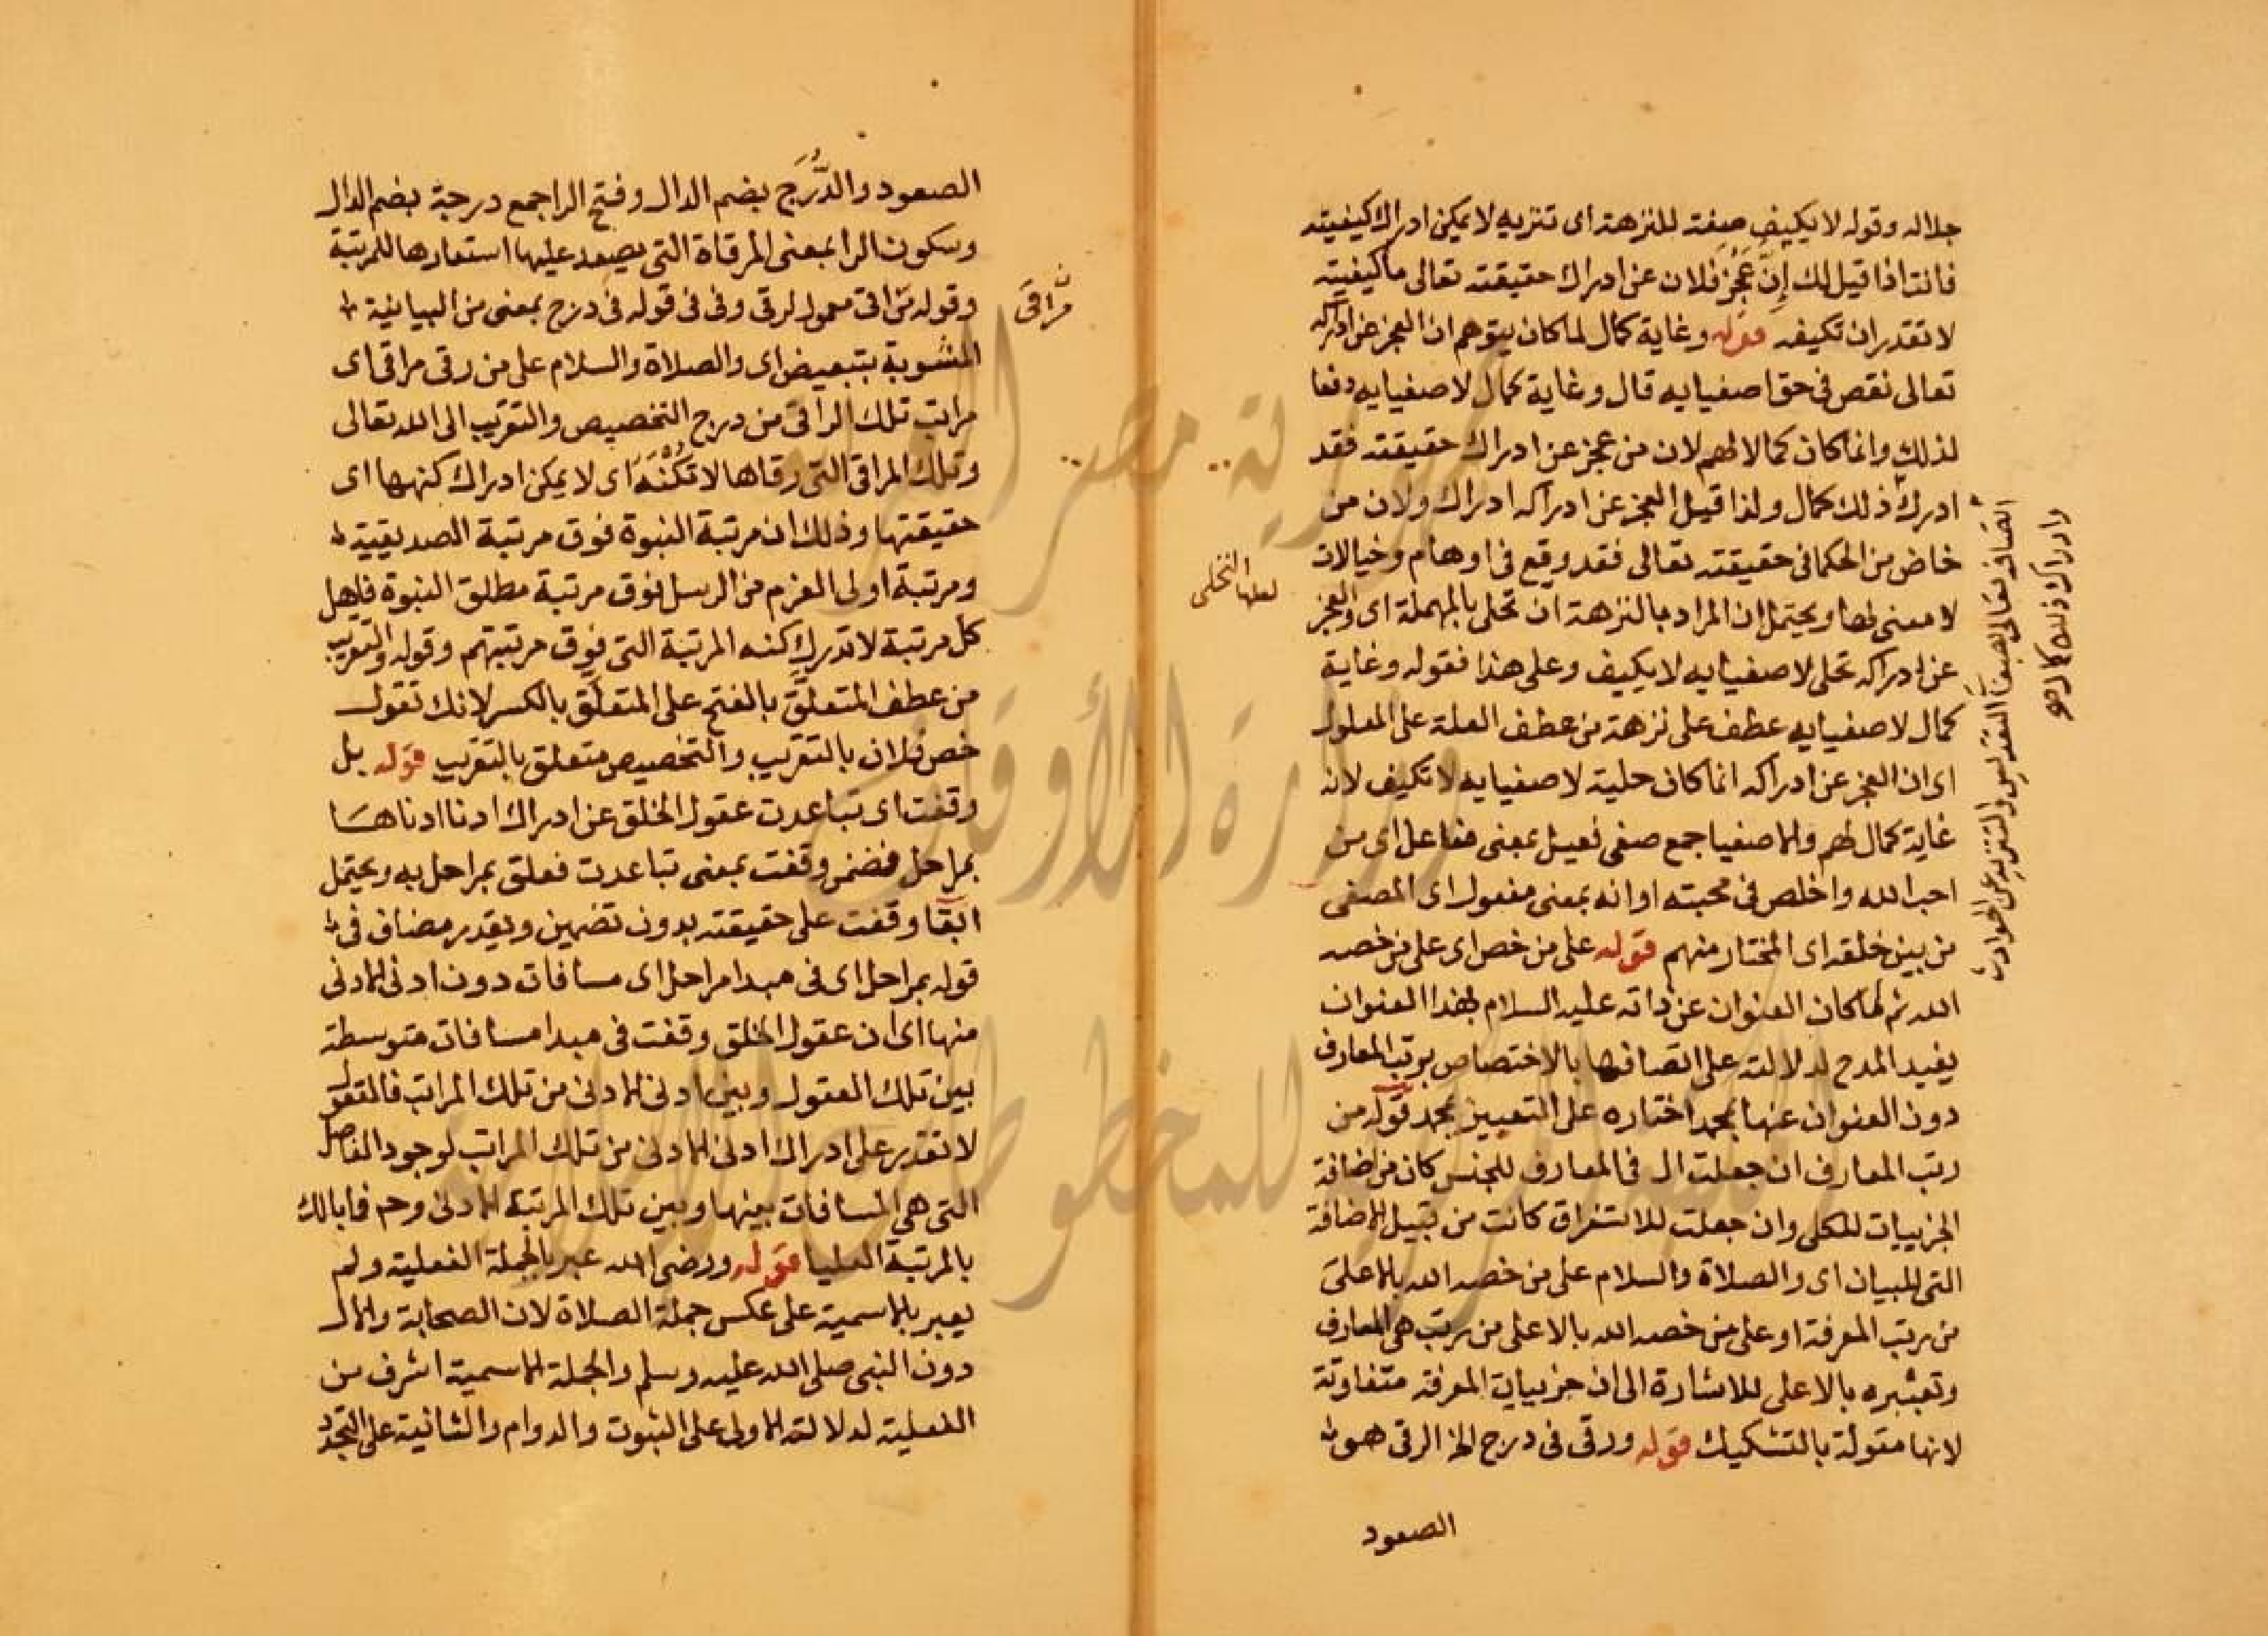 جلاله وقوله لا يكيف صفة للنزهة اى تنزيه لا يمكن ادراك كيفيته
فانت اذا قيل لك إن عَجْز فلان عن ادراك حقيقته تعالى ما كيفيته
لا تقدر ان تكيفه قوله وغاية كمال لما كان يتوهم ان العجز عن ادراكه
تعالى نقص فى حق اصفيايه قال وغاية كمال لاصفيايه دفعا
لذلك وانما كان كمالا لهم لان من عجز عن ادراك حقيقته فقد
ادرك ذلك كمال ولذا قيل العجز عن ادراكه ادراك ولان من
خاض من الحكما فى حقيقته تعالى فقد وقع فى اوهام وخيالات
لا معنى لها ويحتمل ان المراد بالنزهة ان تحلى بالمهملة اى والعجز
عن ادراكه تحلى لاصفيايه لا يكيف وعلى هذا فقوله وغاية
كمال لاصفيايه عطف على نزهة من عطف العلة على المعلول
اى ان العجز عن ادراكه انما كان حلية لاصفيايه لا تكيف لانه
غاية كمال لهم والاصفيا جمع صفى فعيل بمعنى فاعل اى من
احب الله واخلص فى محبته او انه بمعنى مفعول اى المصفى
من بين خلقه اى المختار منهم قوله على من خص اى على من خصه
الله ثم لما كان العنوان عن ذاته عليه السلام بهذا العنوان
يفيد المدح لدلالته على اتصافها بالاختصاص برتب المعارف
دون العنوان عنها بمحمد اختاره على التعبير بمحمد قوله من
رتب المعارف ان جعلت ال فى المعارف للجنس كان من اضافة
الجزييات للكلى وان جعلت للاستغراق كانت من قبيل الاضافة
التى للبيان اى والصلاة والسلام على من خصه الله بالاعلى
من رتب المعرفة او على من خصه الله بالاعلى من رتب هى المعارف
وتعبيره بالاعلى للاشارة الى ان جزييات المعرفة متفاوتة
لانها مقولة بالتشكيك قوله ورقى فى درج الخ الرقى هو
الصعود
اتصافه تعالى بصفات التقديس والتنزيه عن الحوادث
وادراك ذلك كمال
لعلها التخلى
مراقى
الصعود والدُّرَج بضم الدال وفتح الرا جمع درجة بضم الدال
وسكون الرا بمعنى المرقاة التى يصعد عليها استعارها للمرتبة
وقوله مراقى معمول لرقى وفى فى قوله فى درج بمعنى من البيانية
المشوبة بتبعيض اى والصلاة والسلام على من رقى مراقى اى
مراتب تلك المراقى من درج التخصيص والتقريب الى الله تعالى
وتلك المراقى التى رقاها لا تُكْتَنَه اى لا يمكن ادراك كنهها اى
حقيقتها وذلك ان مرتبة النبوة فوق مرتبة الصديقية
ومرتبة اولى العزم من الرسل فوق مرتبة مطلق النبوة فاهل
كل مرتبة لا تدرك كنه المرتبة التى فوق مرتبتهم وقوله والتقريب
من عطف المتعلَّق بالفتح على المتعلِّق بالكسر لانك تقول
خص فلان بالتقريب والتخصيص متعلق بالتقريب قوله بل
وقفت اى تباعدت عقول الخلق عن ادراك ادنا ادناها
بمراحل فضمن وقفت بمعنى تباعدت فعلق بمراحل به ويحتمل
ابقا وقفت على حقيقته بدون تضمين ويقدر مضاف فى
قوله بمراحل اى فى مبدا مراحل اى مسافات دون ادنى الادنى
منها اى ان عقول الخلق وقفت فى مبدا مسافات متوسطة
بين تلك العقول وبين ادنى الادنى من تلك المراتب فالعقول
لا تقدر على ادراك ادنى الادنى من تلك المراتب لوجود الفاصل
التى هى المسافات بينها وبين تلك المرتبة الادنى وحـ فما بالك
بالمرتبة العليا قوله ورضى الله عبر بالجملة الفعلية ولم
يعبر بالاسمية على عكس جملة الصلاة لان الصحابة والال
دون النبى صلى الله عليه وسلم والجملة الاسمية اشرف من
الفعلية لدلالة الاولى على الثبوت والدوام والثانية على التجدد
جمهورية مصر العربية
وزارة الأوقاف
المكتبة المركزية للمخطوطات الإسلامية